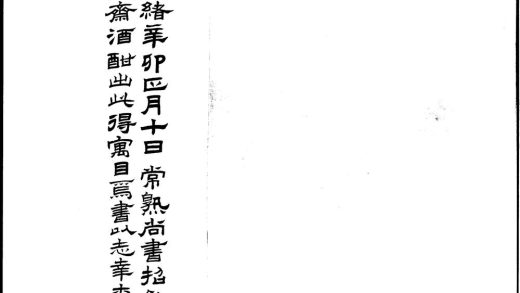 緒辛卯正月十日常熟尚書招
齋酒酣出此得寓目焉書以志幸